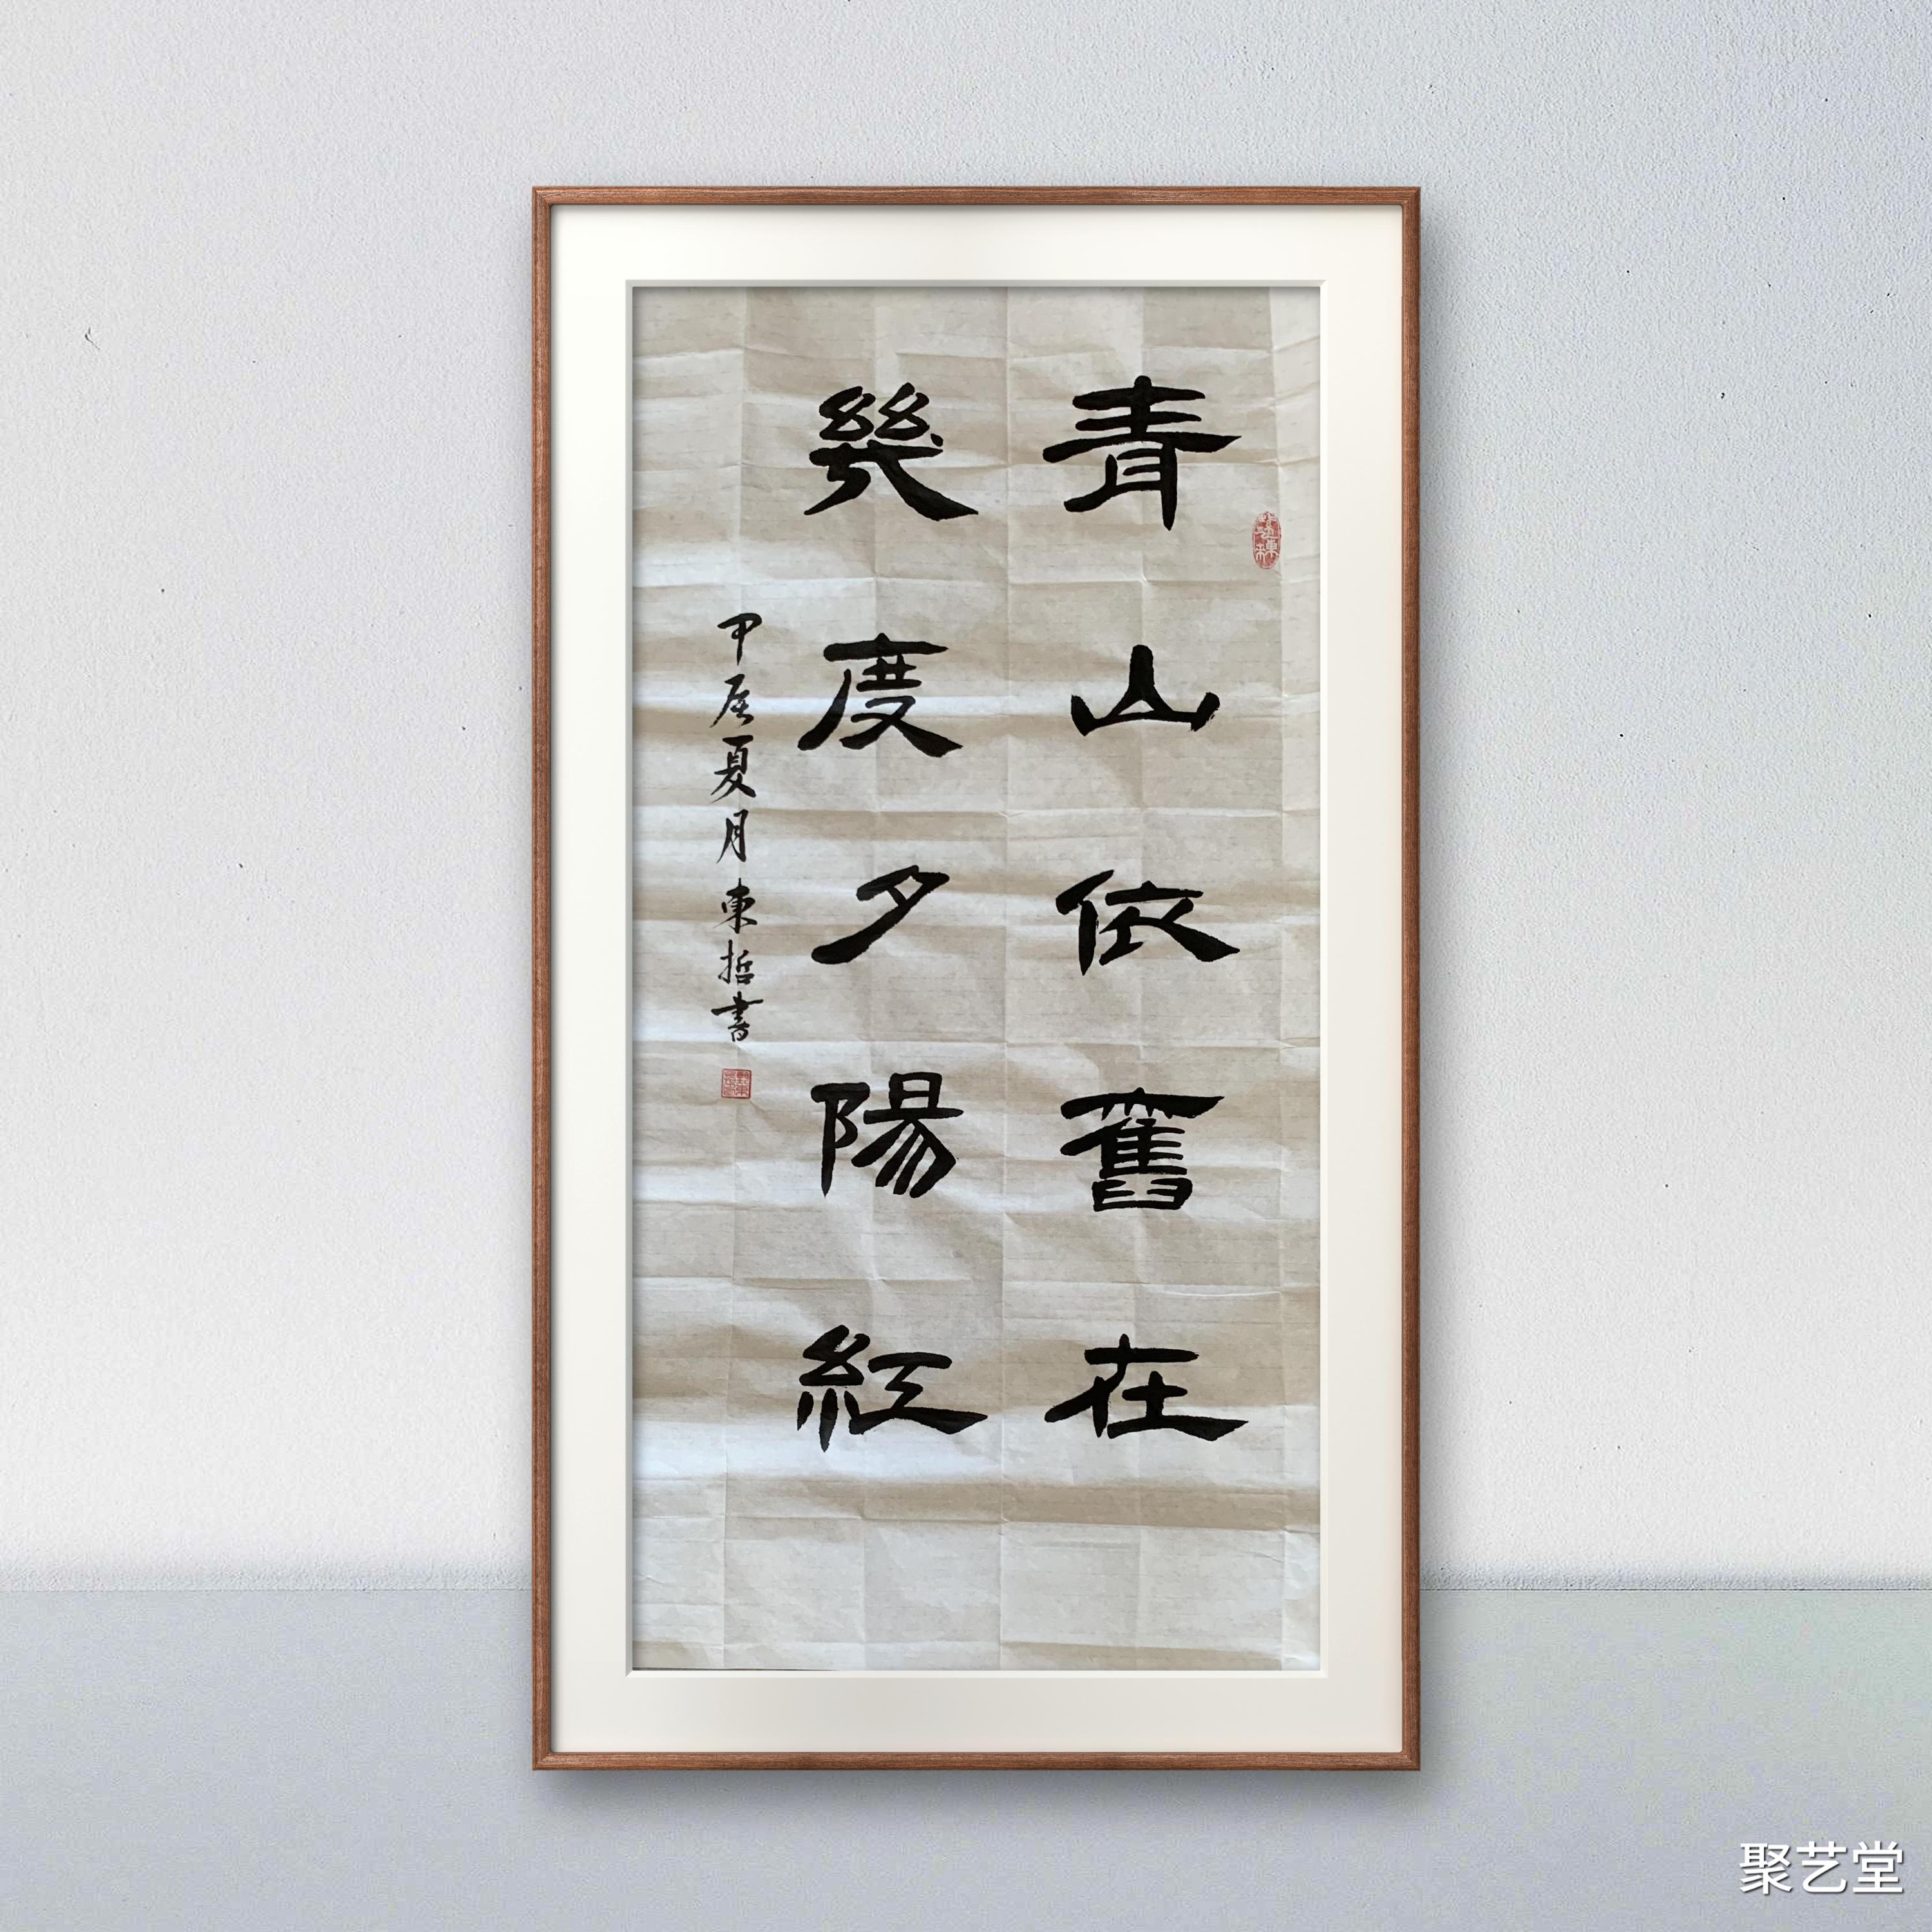 青山依舊在
幾度夕陽紅
甲辰夏月東哲書
聚艺堂